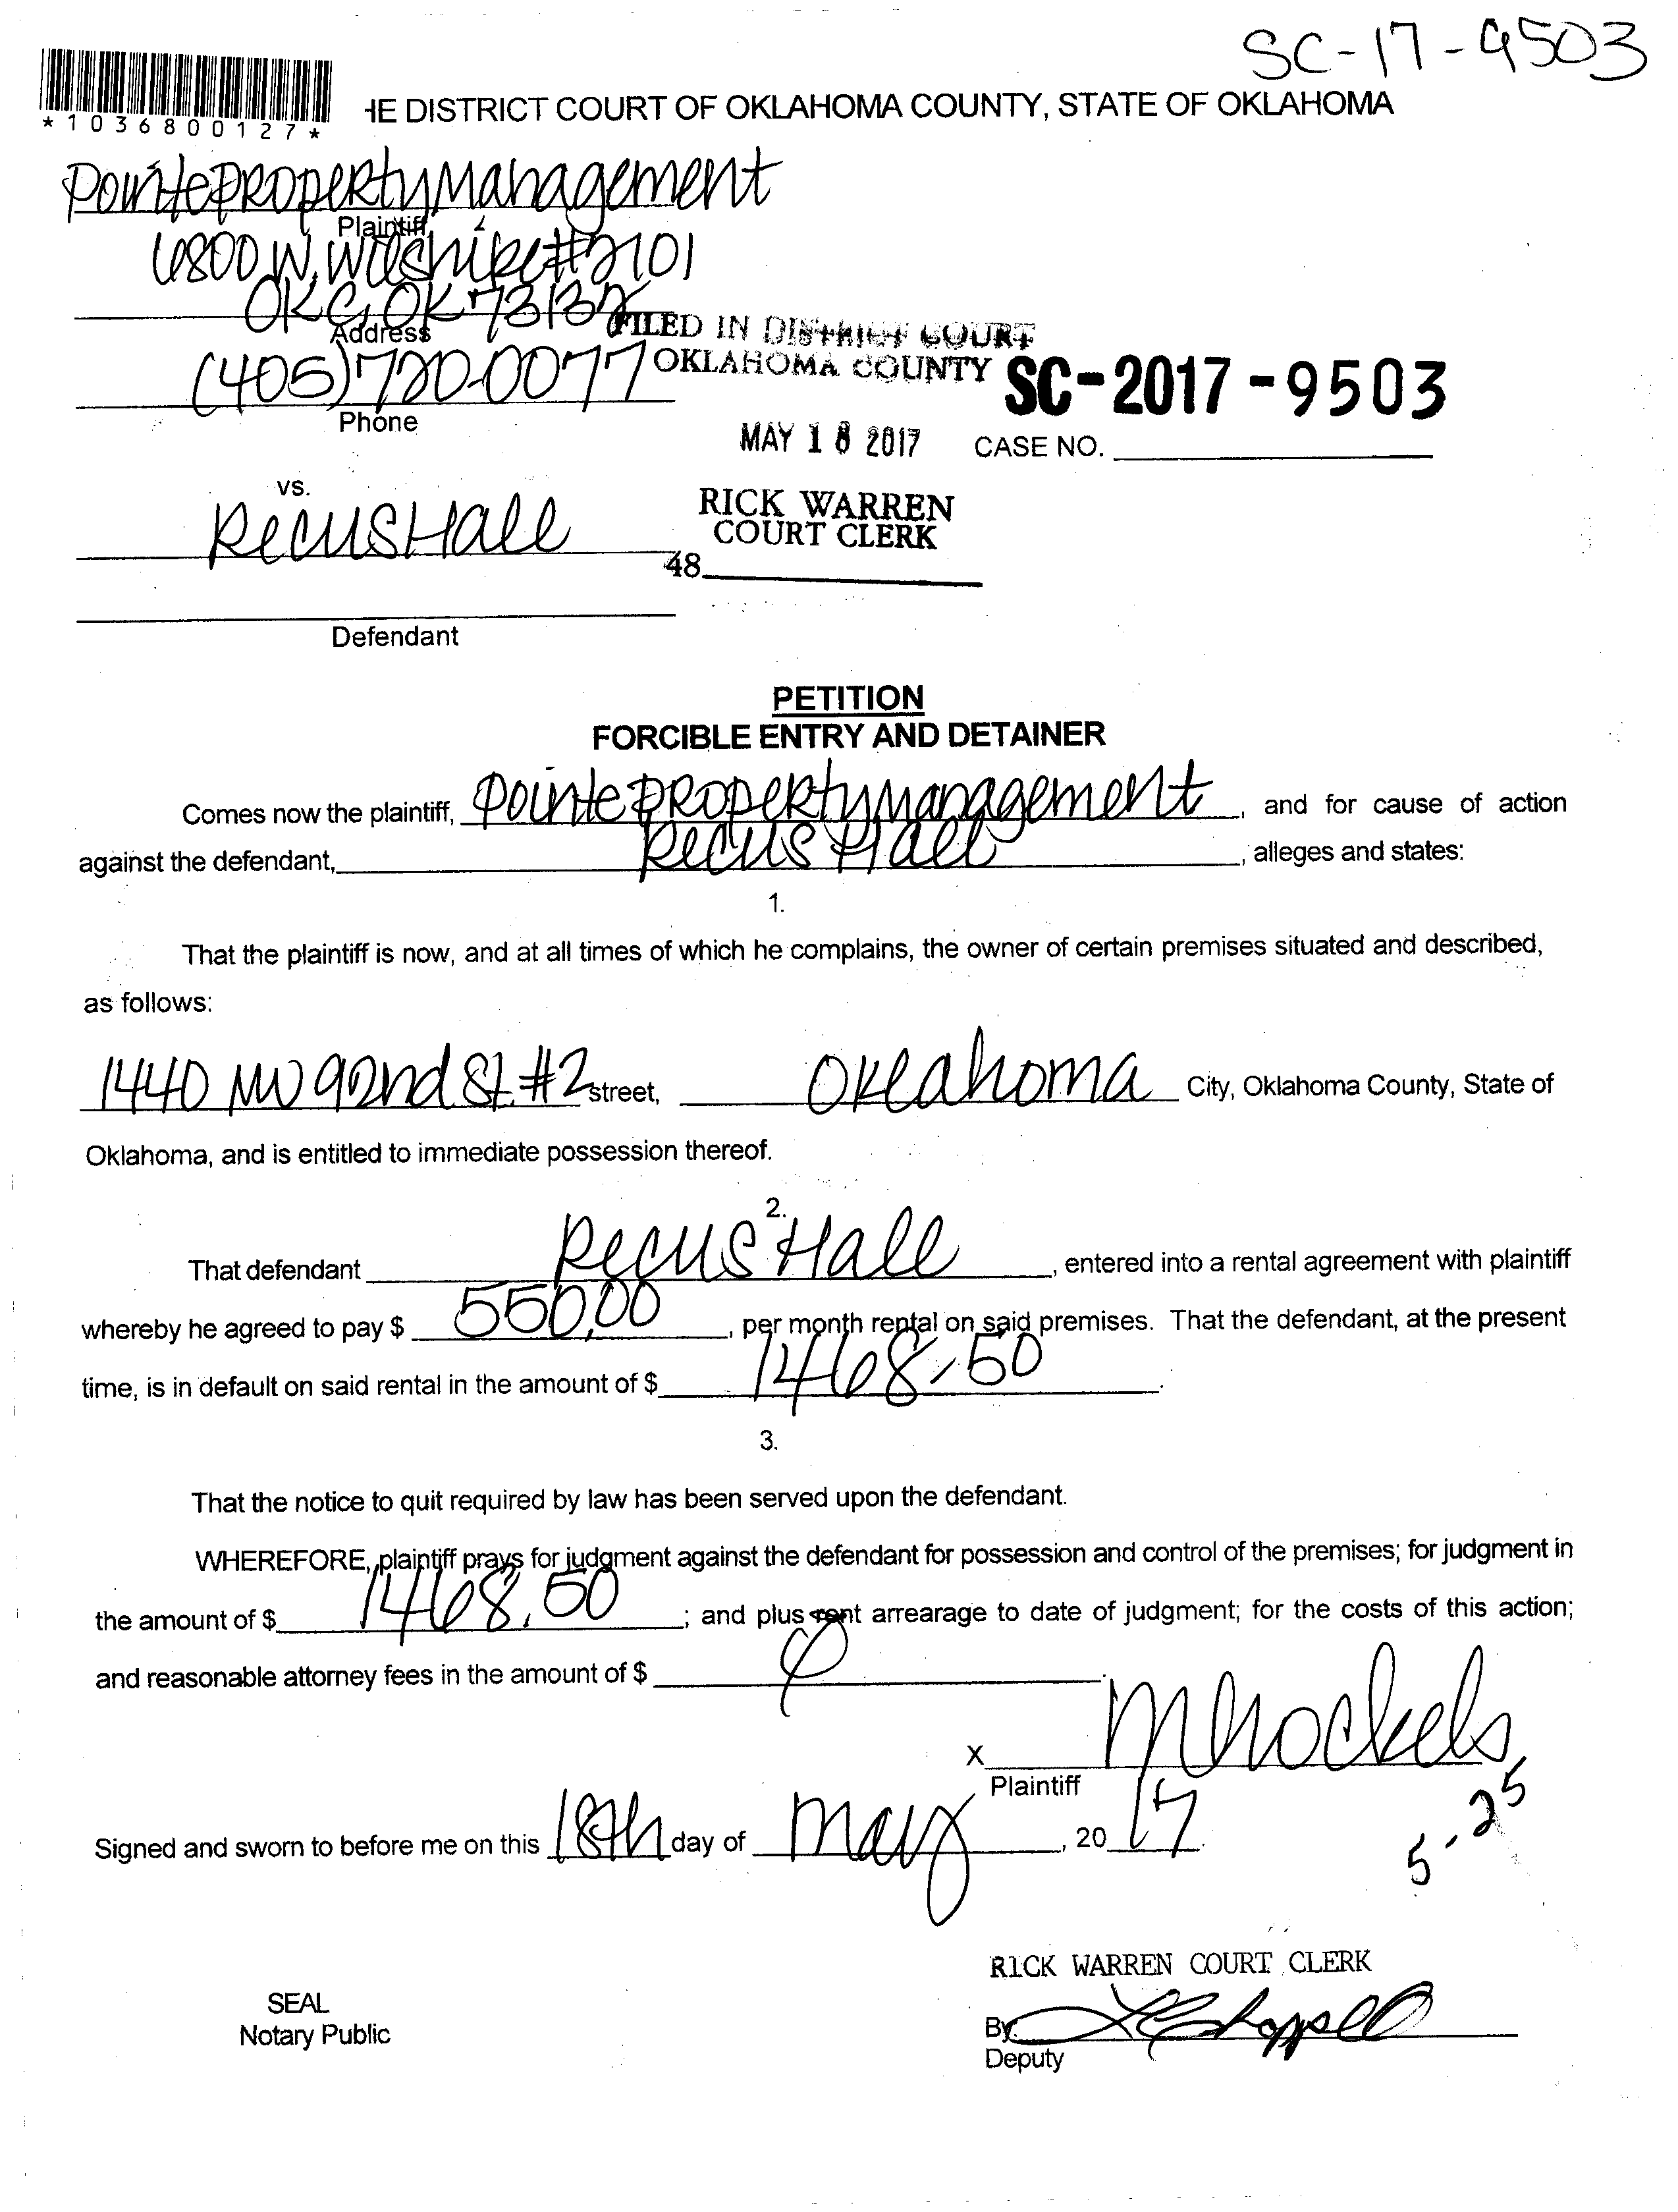 SC-17-9503
*1036800127*
HE DISTRICT COURT OF OKLAHOMA COUNTY, STATE OF OKLAHOMA
Pointe Property Management
Plaintiff
6800 W. Wilshire #2101
OKC, OK 73132
Address
FILED IN DISTRICT COURT
(405) 720-0077
OKLAHOMA COUNTY
SC-2017-9503
Phone
MAY 18 2017
CASE NO.
vs.
RICK WARREN
COURT CLERK
Recus Hall
48
Defendant
PETITION
FORCIBLE ENTRY AND DETAINER
Comes now the plaintiff, Pointe Property Management, and for cause of action
against the defendant, Recus Hall, alleges and states:
1.
That the plaintiff is now, and at all times of which he complains, the owner of certain premises situated and described,
as follows:
1440 NW 92nd St. #2 street, Oklahoma City, Oklahoma County, State of
Oklahoma, and is entitled to immediate possession thereof.
2.
That defendant Recus Hall, entered into a rental agreement with plaintiff
whereby he agreed to pay $ 550.00, per month rental on said premises. That the defendant, at the present
time, is in default on said rental in the amount of $ 1468.50.
3.
That the notice to quit required by law has been served upon the defendant.
WHEREFORE, plaintiff prays for judgment against the defendant for possession and control of the premises; for judgment in
the amount of $ 1468.50; and plus rent arrearage to date of judgment; for the costs of this action;
and reasonable attorney fees in the amount of $ .
X
Plaintiff
5-25
Signed and sworn to before me on this 18th day of May, 20 17.
RICK WARREN COURT CLERK
SEAL
Notary Public
By:
Deputy